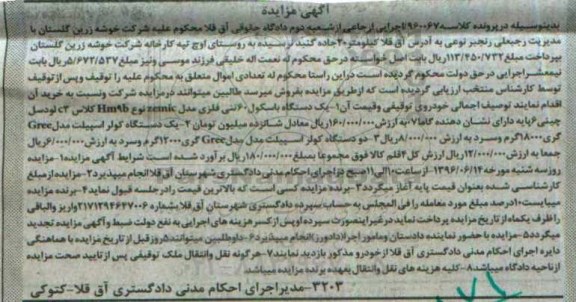 آگهی مزایده
بدینوسیله در پرونده کلاسه ۹۶۰۰۶۷ اجرایی ارجاعی از شعبه دوم دادگاه حقوقی آق قلا محکوم علیه شرکت خوشه زرین گلستان با
مدیریت رجبعلی رنجبر نوعی به آدرس آق قلا کیلومتر ۲ جاده گنبد نرسیده به روستای اوچ تپه کارخانه شرکت خوشه زرین گلستان
بپرداخت مبلغ ۱۱۳/۴۵۰/۷۳۲ ریال بابت اصل خواسته در حق محکوم له نعمت اله خلیقی فرزند موسی ونیز مبلغ ۵/۶۷۲/۵۳۷ ریال بابت
نیمعشر اجرایی در حق دولت محکوم گردیده است در این راستا محکوم له تعدادی اموال متعلق به محکوم علیه را توقیف و پس از توقیف
توسط کارشناس منتخب ارزیابی گردیده است که از طریق مزایده بفروش میرسد طالبین میتوانند در مزایده شرکت ونسبت به خرید آن
اقدام نمایند توصیف اجمالی خودروی توقیفی وقیمت آن ۱-یک دستگاه باسکول ۶۰ تنی فلزی مدل zemic نوع Hm9b کلاس c3 لودسل
چینی ۶ پایه دارای نشان دهنده کاما ۷ به ارزش ۱۶۰/۰۰۰/۰۰۰ ریال معادل شانزده میلیون تومان ۲-یک دستگاه کولر اسپیلت مدل Gree
گری ۱۸۰۰۰ گرم وسرد به ارزش ۸/۰۰۰/۰۰۰ ریال ۳-دو دستگاه کولر اسپیلت مدل Gree گری ۱۲۰۰۰ گرم وسرد به ارزش ۶/۰۰۰/۰۰۰ ریال
جمعا به ارزش ۱۲/۰۰۰/۰۰۰ ریال ارزش کل ۴ قلم کالا فوق مجموعا بمبلغ ۱۸۰/۰۰۰/۰۰۰ ریال برآورد شده است شرایط آگهی مزایده ۱-مزایده
روز سه شنبه مورخه ۱۳۹۶/۰۶/۱۴ از ساعت ۱۰ الی ۱۱ صبح در اجرای احکام مدنی دادگستری شهرستان آق قلا انجام میپذیرد ۲-مزایده از مبلغ
کارشناسی شده بعنوان قیمت پایه آغاز میگردد ۳-برنده مزایده کسی است که بالاترین قیمت را در جلسه قبول نماید ۴-برنده مزایده
میبایست ۱۰ درصد مبلغ مورد معامله را فی المجلس به حساب سپرده دادگستری شهرستان آق قلا بشماره ۲۱۷۱۲۹۴۶۴۷۰۰۶ واریز والباقی
را ظرف یکماه از تاریخ مزایده پرداخت نماید در غیر اینصورت سپرده او پس از کسر هزینه های اجرایی به نفع دولت ضبط و آگهی مزایده تجدید
میگردد ۵-مزایده با حضور نماینده دادستان و مامور اجرا (دادورز) انجام میپذیرد ۶-داوطلبین میتوانند ۵ روز قبل از تاریخ مزایده با هماهنگی
دایره اجرای احکام مدنی دادگستری آق قلا از خودرو مذکور بازدید نمایند ۷-هرگونه نقل وانتقال ملک توقیفی پس از تایید صحت مزایده
از ناحیه دادگاه میباشد ۸-کلیه هزینه های نقل وانتقال بعهده برنده مزایده میباشد.
۳۲۰۳-مدیر اجرای احکام مدنی دادگستری آق قلا-کتوکی